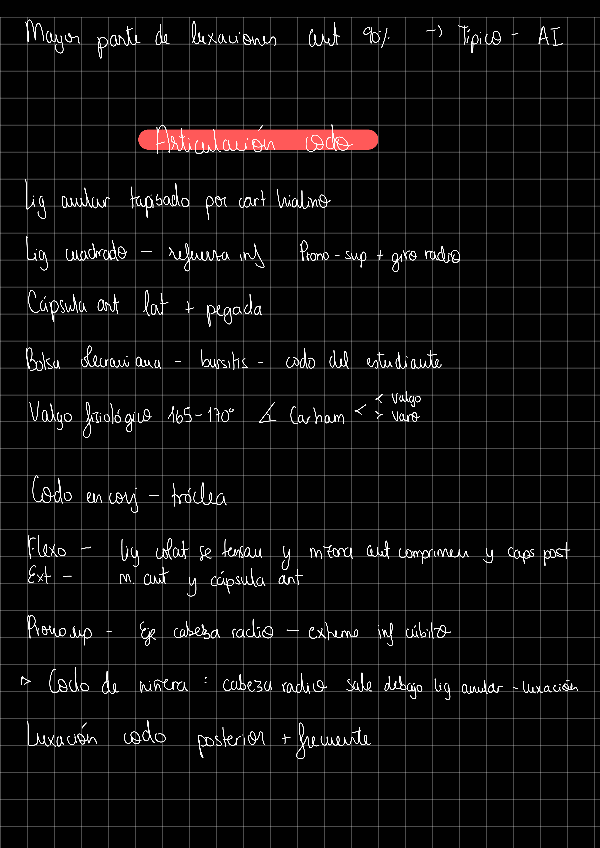 Mayor parte de luxaciones ant 90% → Típico - AI
Articulación codo
Lig anular tapisado por cart hialino
Lig cuadrado - refuerza inf Prono-sup + giro radio
Cápsula ant lat + pegada
Bolsa olecraniana - bursitis - codo del estudiante
Valgo fisiológico 165-170° ∡ Carham < < valgo
> varo
Codo en conj - tróclea
Flexo - lig colat se tensan y m zona ant comprimen y caps post
Ext - m. ant y cápsula ant
Pronosup - Eje cabeza radio - extremo inf cúbito
▷ Codo de niñera : cabeza radio sale debajo lig anular - luxación
Luxación codo posterior + frecuente